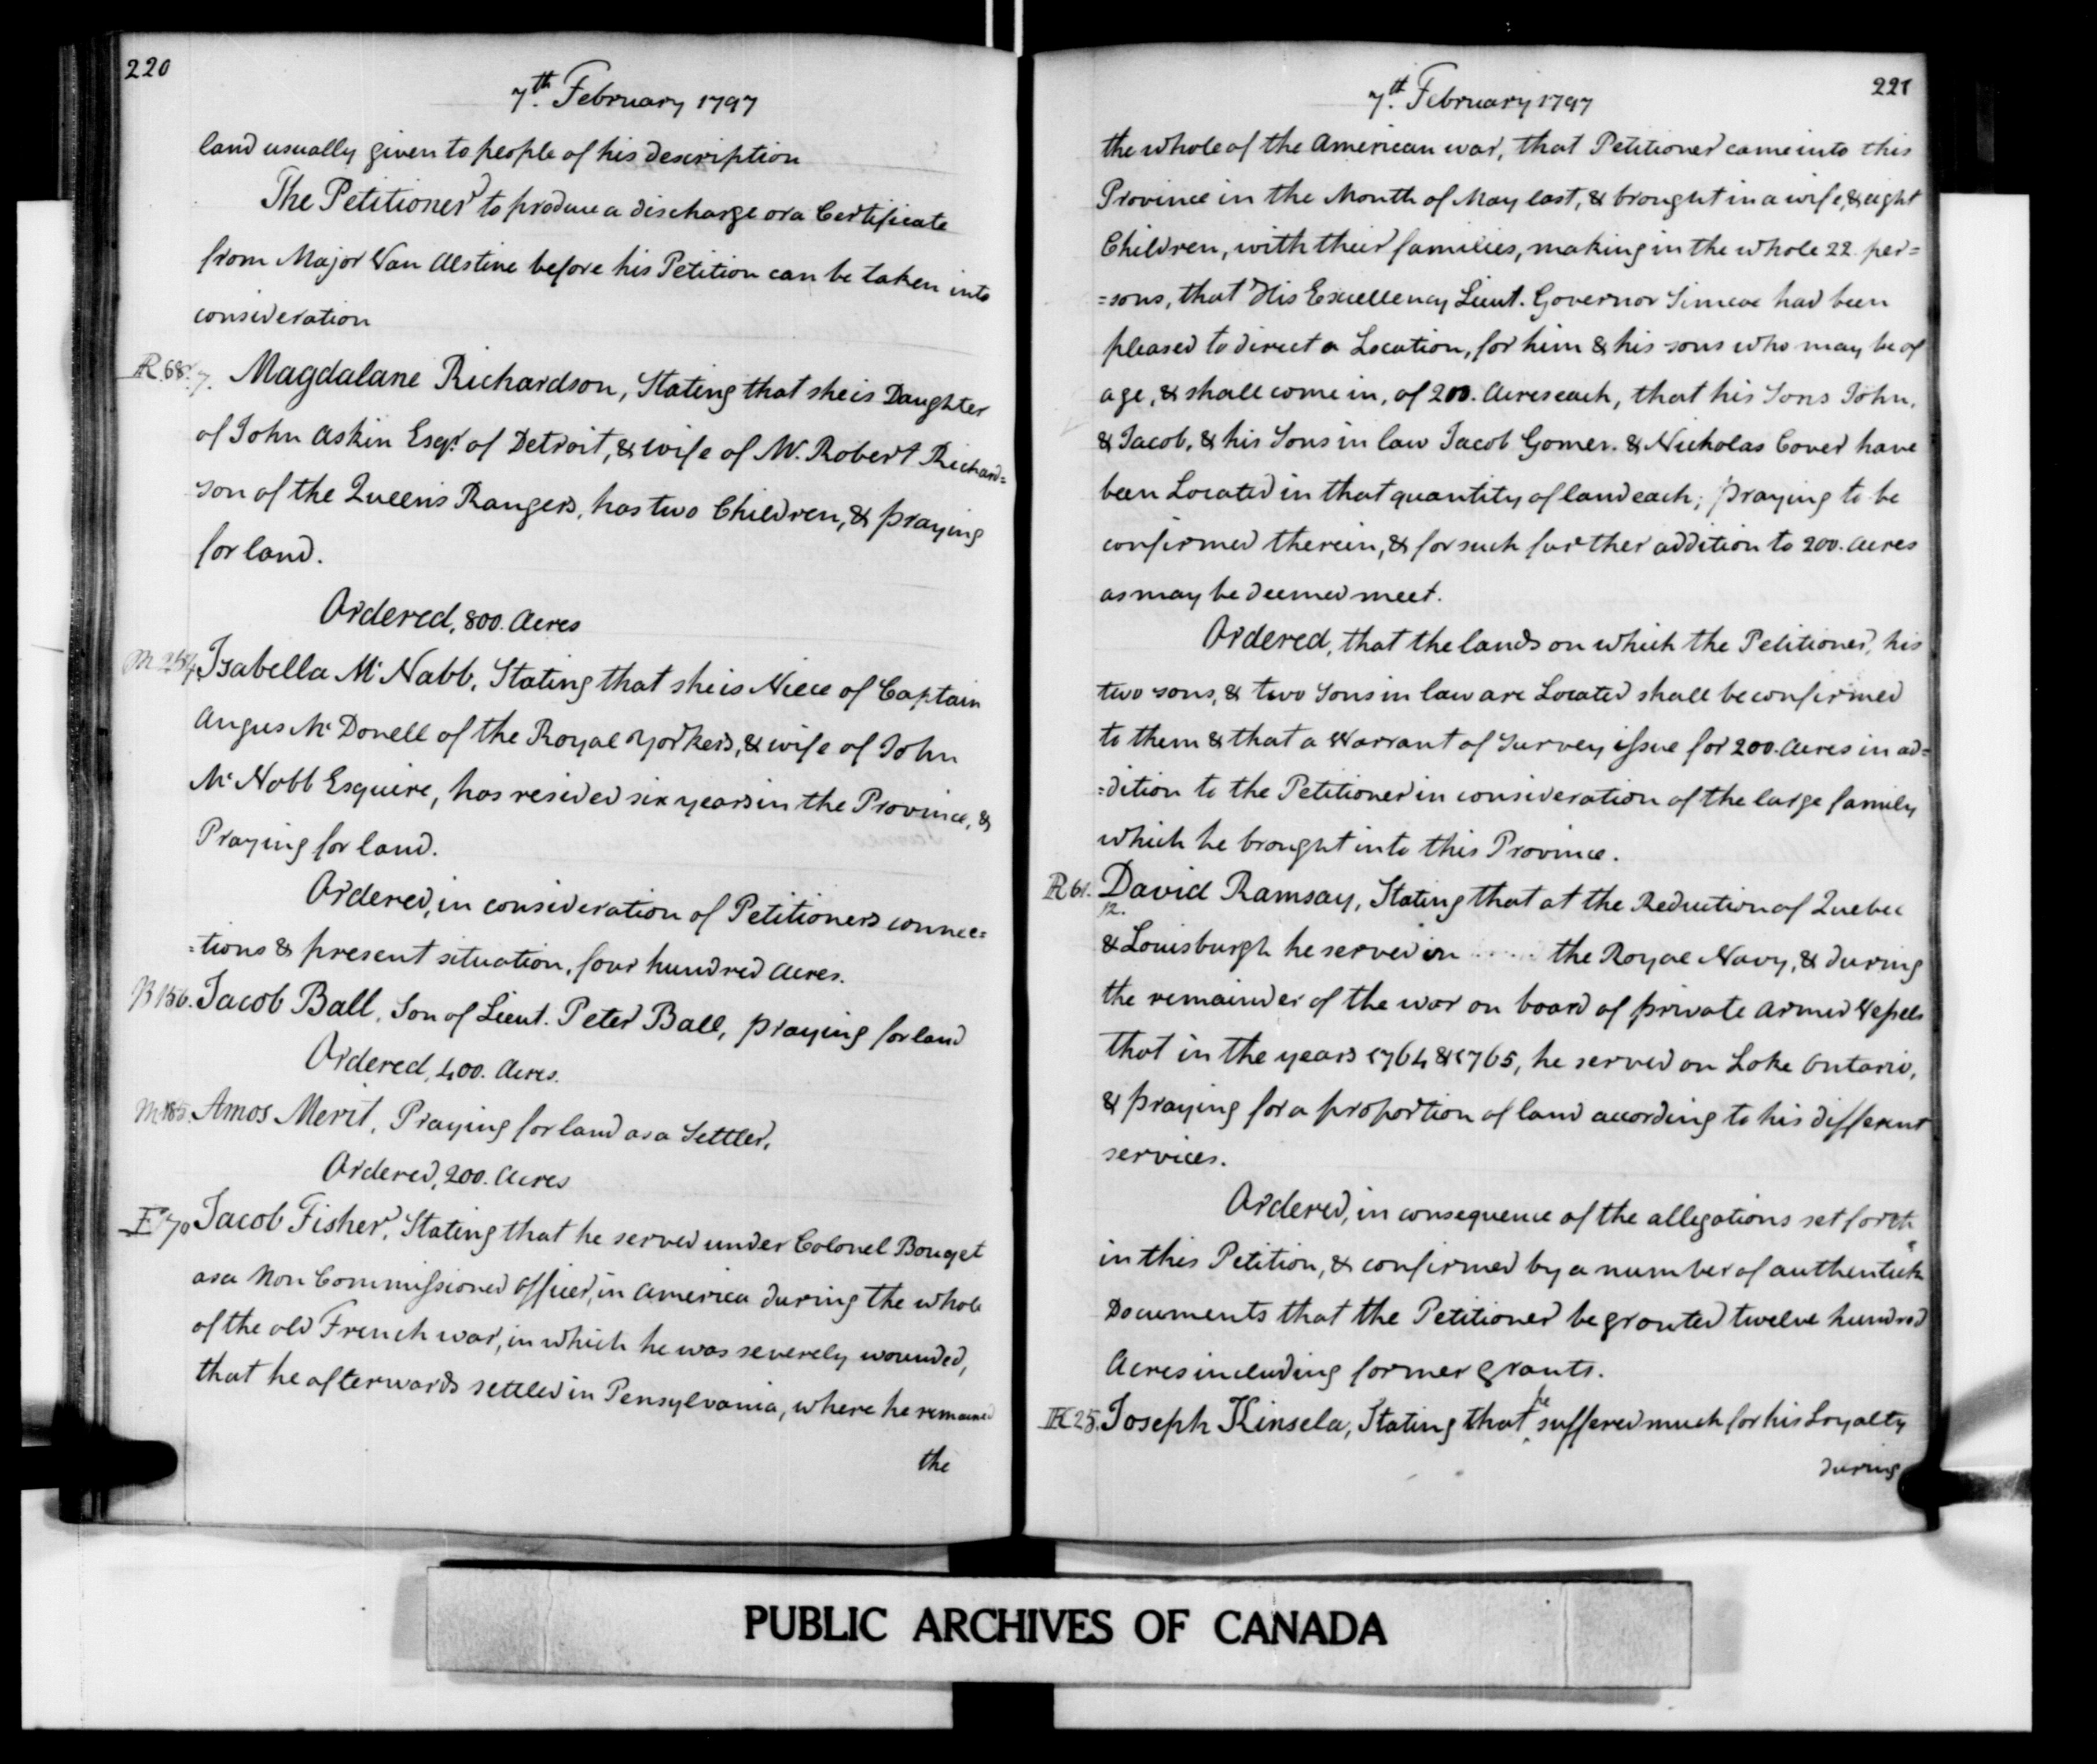 220
7th February 1797
land usually given to people of his description
The Petitioner to produce a discharge or a Certificate
from Major Van Alstine before his Petition can be taken into
consideration
R. 68. 7. Magdalane Richardson, Stating that she is Daughter
of John Askin Esqr. of Detroit, & wife of Mr. Robert Richard=
son of the Queens Rangers, has two Children, & praying
for land.
Ordered, 800. Acres
Isabella Mc Nabb, Stating that she is Niece of Captain
Angus Mc Donell of the Royal Yorkers, & wife of John
Mc Nabb Esquire, has resided six years in the Province, &
Praying for land.
Ordered, in consideration of Petitioners connec=
=tions & present situation, four hundred Acres.
B 156. Jacob Ball, Son of Lieut. Peter Ball, praying for land
Ordered, 400. Acres.
M 185. Amos Merit, Praying for land as a Settler.
Ordered, 200. Acres
F 70 Jacob Fisher, Stating that he served under Colonel Bouget
as a Non Commissioned Officer, in America during the whole
of the old French war, in which he was severely wounded,
that he afterwards settled in Pensylvania, where he remained
the
221
7th February 1797
the whole of the American war, that Petitioner came into this
Province in the Month of May last, & brought in a wife, & eight
Children, with their families, making in the whole 22. per=
=sons, that His Excellency Lieut. Governor Simcoe had been
pleased to direct a Location, for him & his sons who may be of
age, & shall come in, of 200. Acres each, that his Sons John,
& Jacob, & his Sons in law Jacob Gomer. & Nicholas Cover have
been Located in that quantity of land each; praying to be
confirmed therein, & for such further addition to 200. Acres
as may be deemed meet.
Ordered, that the lands on which the Petitioner, his
two sons, & two Sons in law are Located shall be confirmed
to them & that a Warrant of Survey issue for 200. Acres in ad=
=dition to the Petitioner in consideration of the large family
which he brought into this Province.
R 61. David Ramsay, Stating that at the Reduction of Quebec
& Louisburgh he served in ..... the Royal Navy, & during
the remainder of the war on board of private Armed Vessels
that in the years 1764 & 1765, he served on Lake Ontario,
& praying for a proportion of land according to his different
services.
Ordered, in consequence of the allegations set forth
in this Petition, & confirmed by a number of authentick
Documents that the Petitioner be granted twelve hundred
Acres including former grants.
K 25. Joseph Kinsela, Stating that he suffered much for his Loyalty
during
PUBLIC ARCHIVES OF CANADA